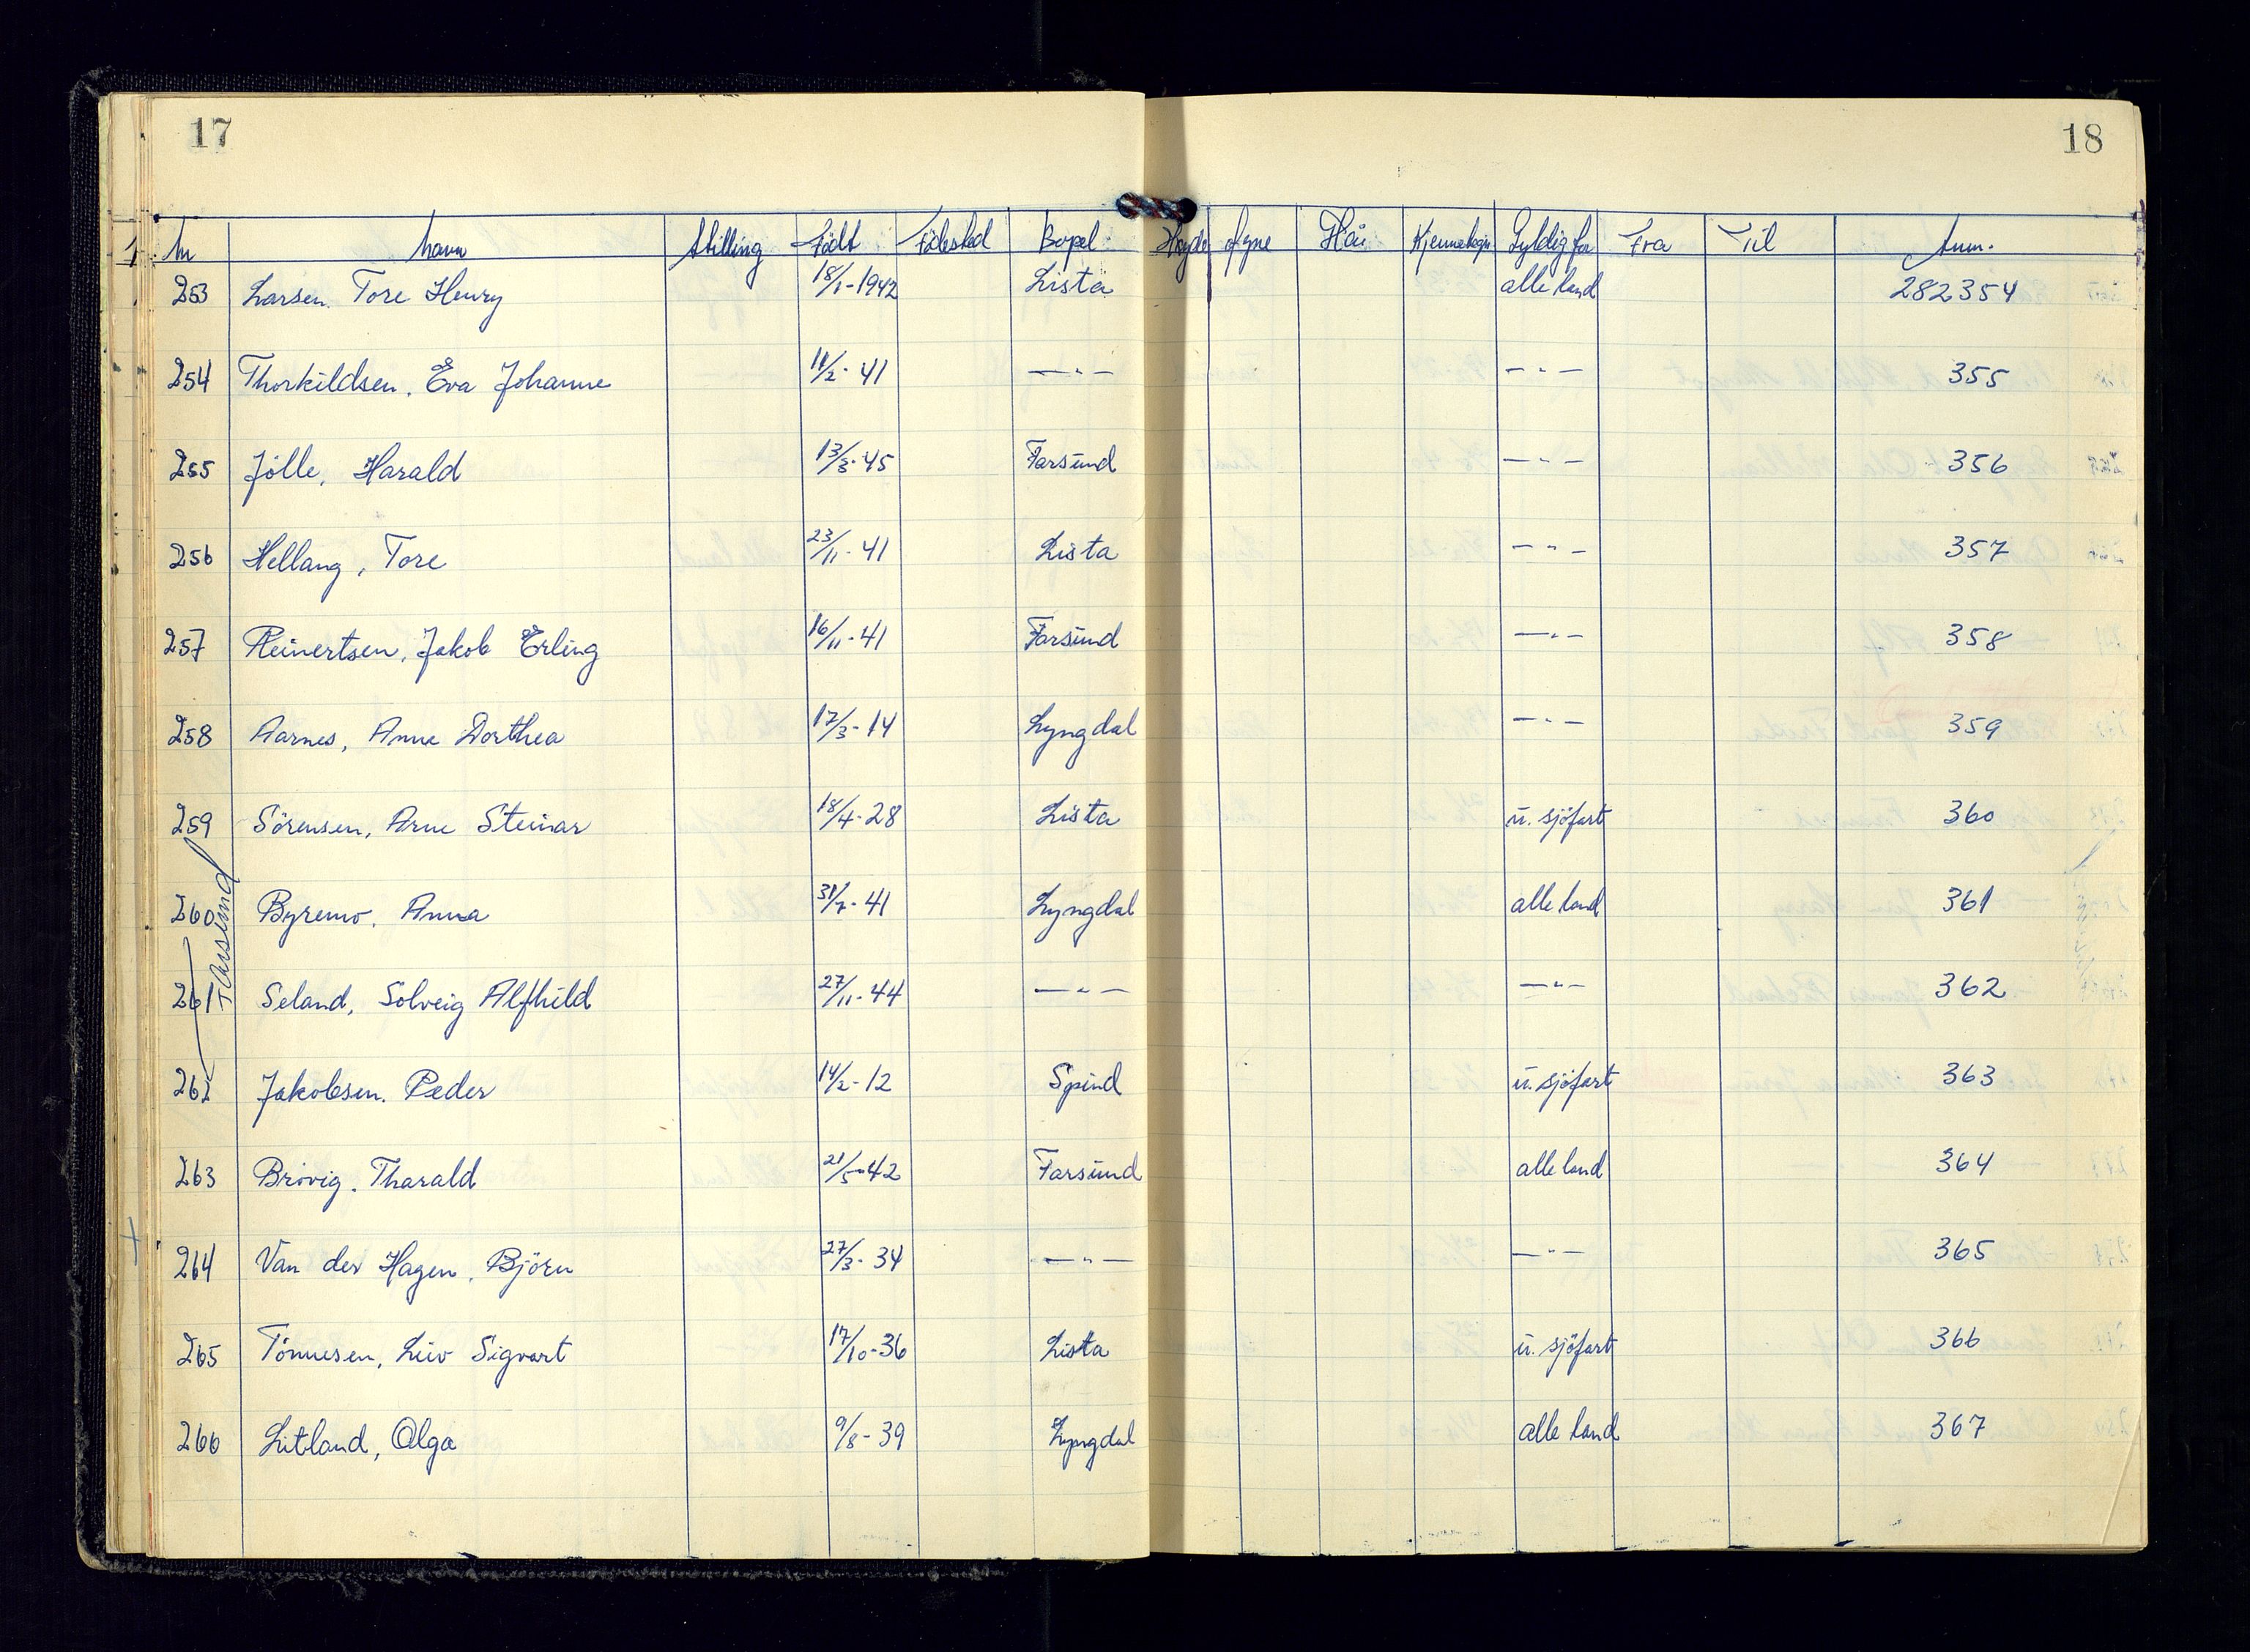 17
18
Nr Navn Stilling Født Fødested Bopel Høyde Øyne Hår Kjennetegn Gyldig for Fra Til Anm.
253 Larsen. Tore Henry 18/1-1942 Lista alle land 282354
254 Thorkildsen, Eva Johanne 11/2-41 —"— —"— 355
255 Jölle, Harald 13/3-45 Farsund —"— 356
256 Hellang, Tore 23/11-41 Lista —"— 357
257 Reinertsen, Jakob Erling 16/11-41 Farsund —"— 358
258 Aarnes, Anna Dorthea 17/3-14 Lyngdal —"— 359
259 Sörensen, Arne Steinar 18/4-28 Lista u. sjöfart 360
260 Byremo, Anna 31/7-41 Lyngdal alle land 361
Farsund
261 Seland, Solveig Alfhild 27/11-44 —"— —"— 362
262 Jakobsen. Peder 14/2-12 Spind u. sjöfart 363
263 Brövig. Tharald 21/5-42 Farsund alle land 364
264 Van der Hagen, Björn 27/3-34 —"— —"— 365
265 Tönnesen, Liiv Sigvart 17/10-36 Lista u. sjöfart 366
266 Litland, Olga 9/8-39 Lyngdal alle land 367